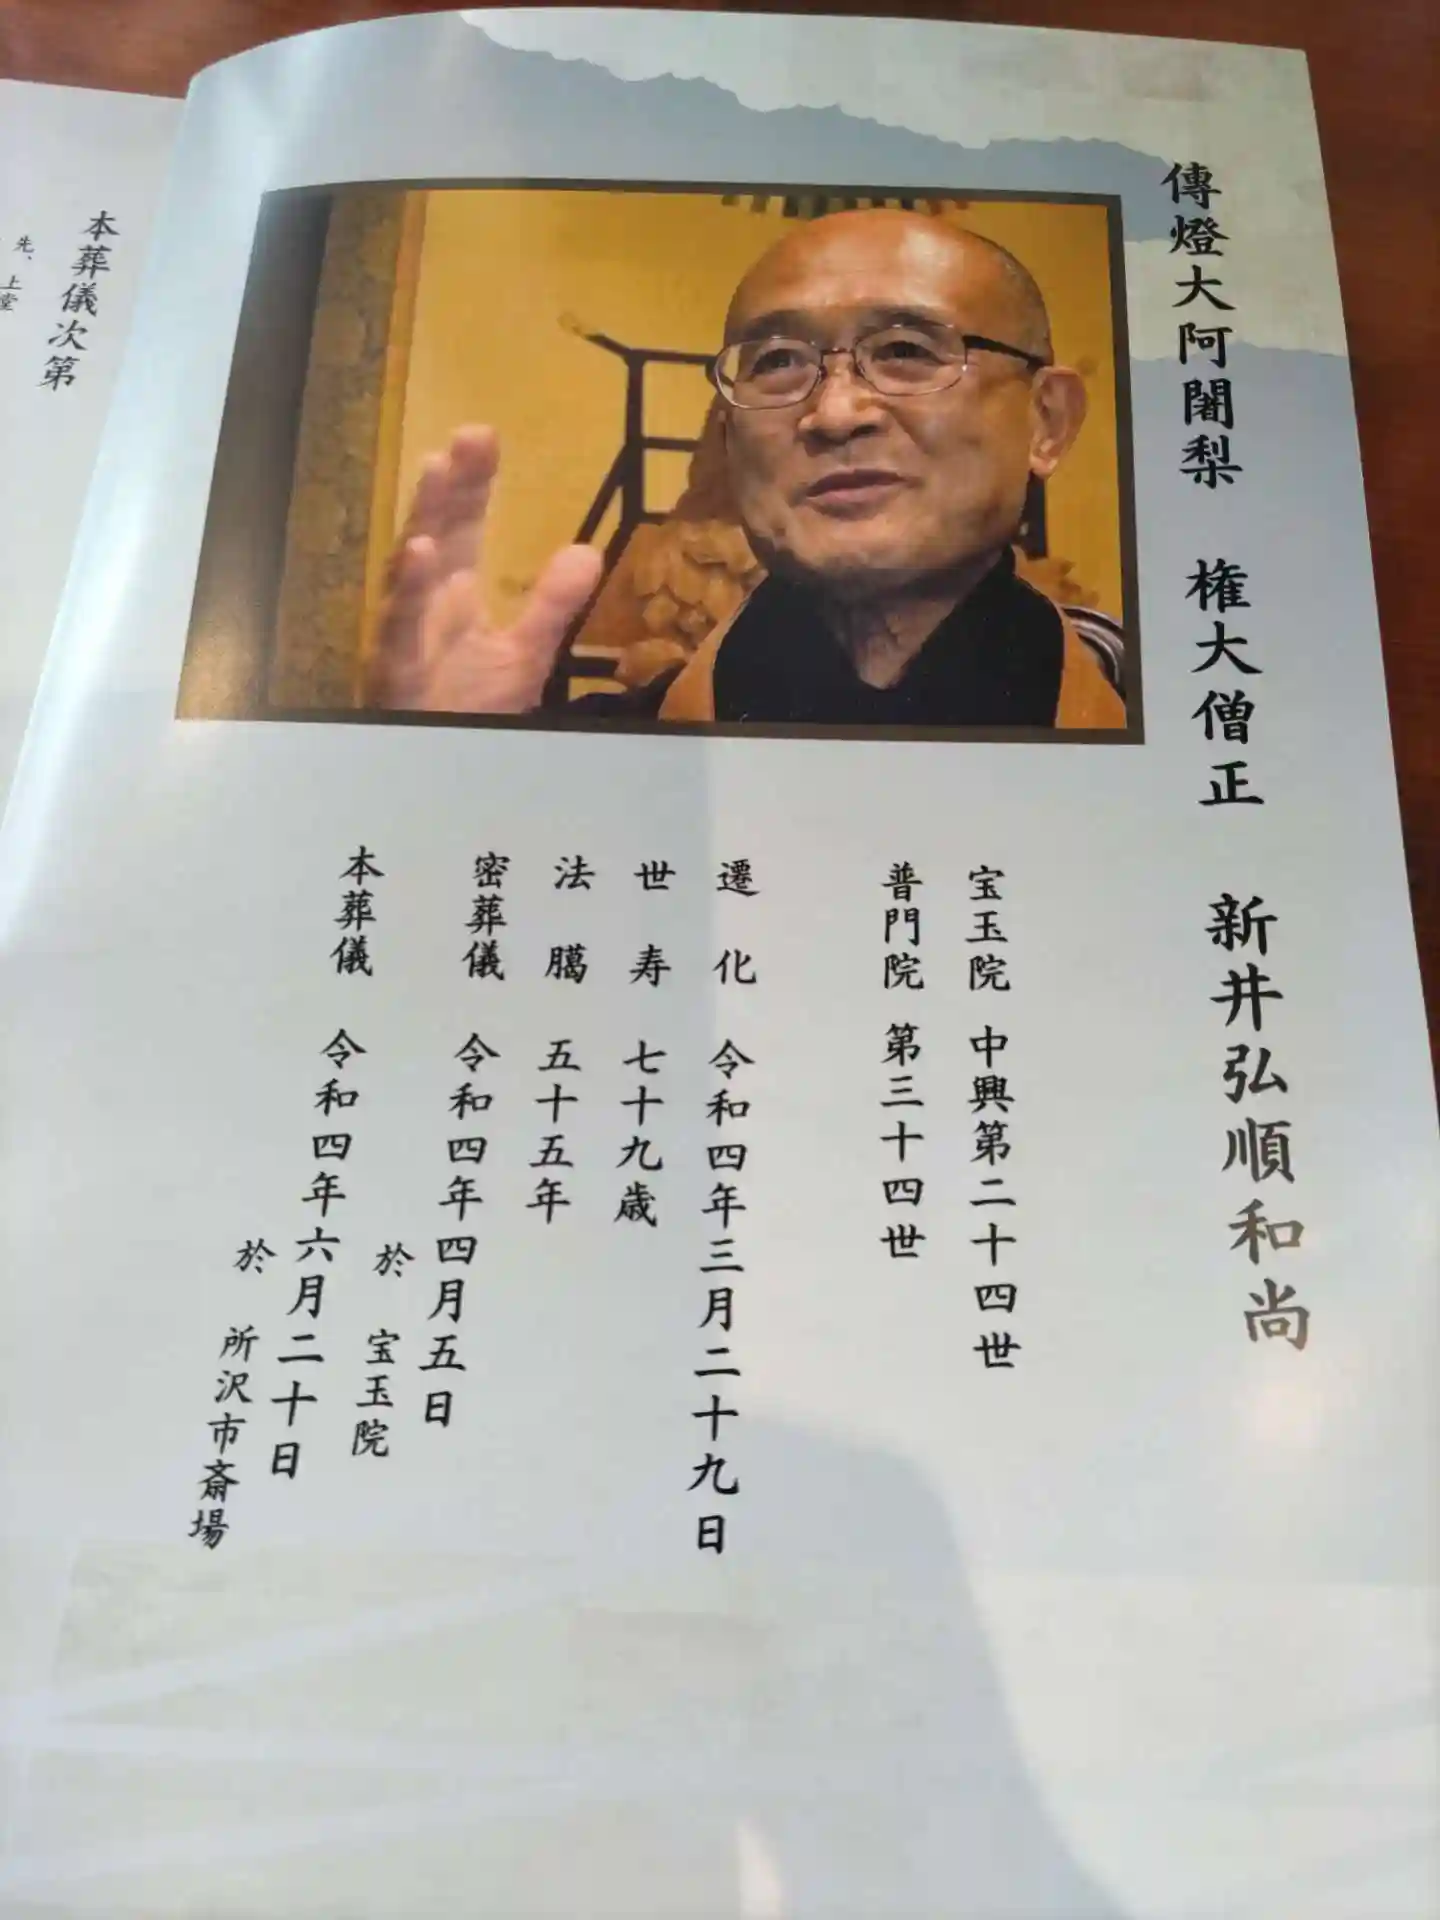 傳燈大阿闍梨　権大僧正　新井弘順和尚
宝玉院　中興第二十四世
普門院　第三十四世
遷化　令和四年三月二十九日
世寿　七十九歳
法臈　五十五年
密葬儀　令和四年四月五日
於　宝玉院
本葬儀　令和四年六月二十日
於　所沢市斎場
本葬儀次第
先、上堂